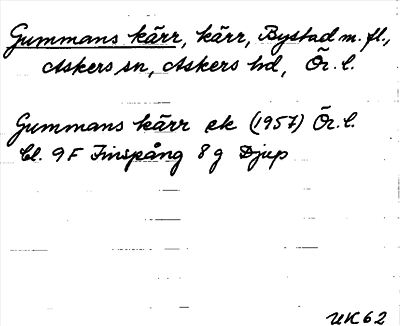 Gummans kärr, kärr, Bystad m. fl.,
Askers sn, Askers hd, Ör. l.
Gummans kärr ek (1957) Ör. l.
bl. 9F Finspång 8 g Djup
UK62